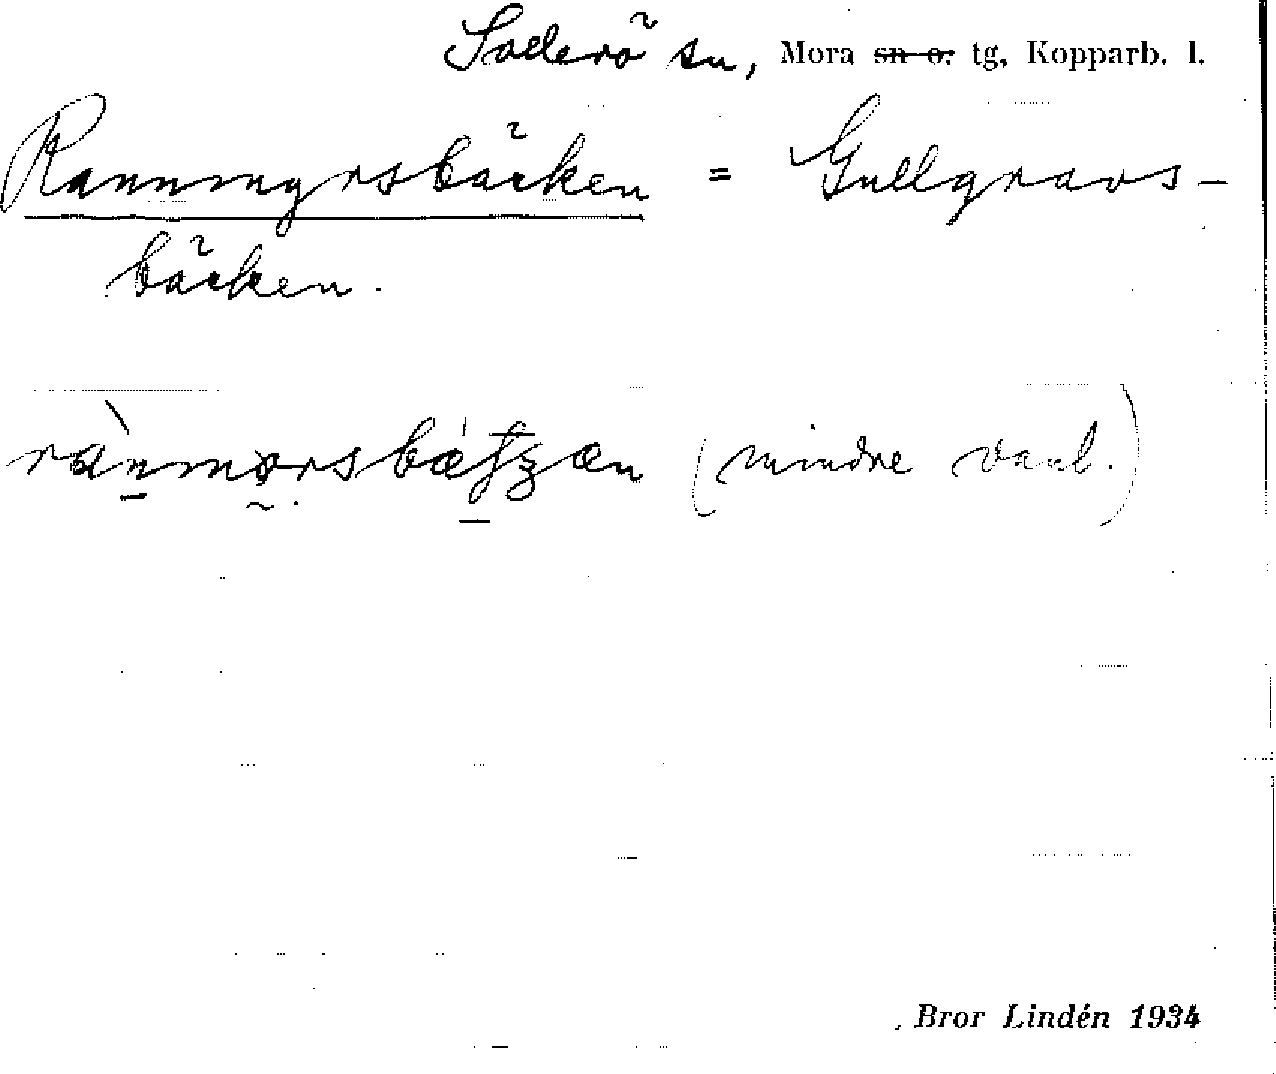 Sollerö sn, Mora sn o. tg, Kopparb. l.
Rannmyrsbäcken = Gullgravs-
bäcken.
(mindre vanl.)
Bror Lindén 1934